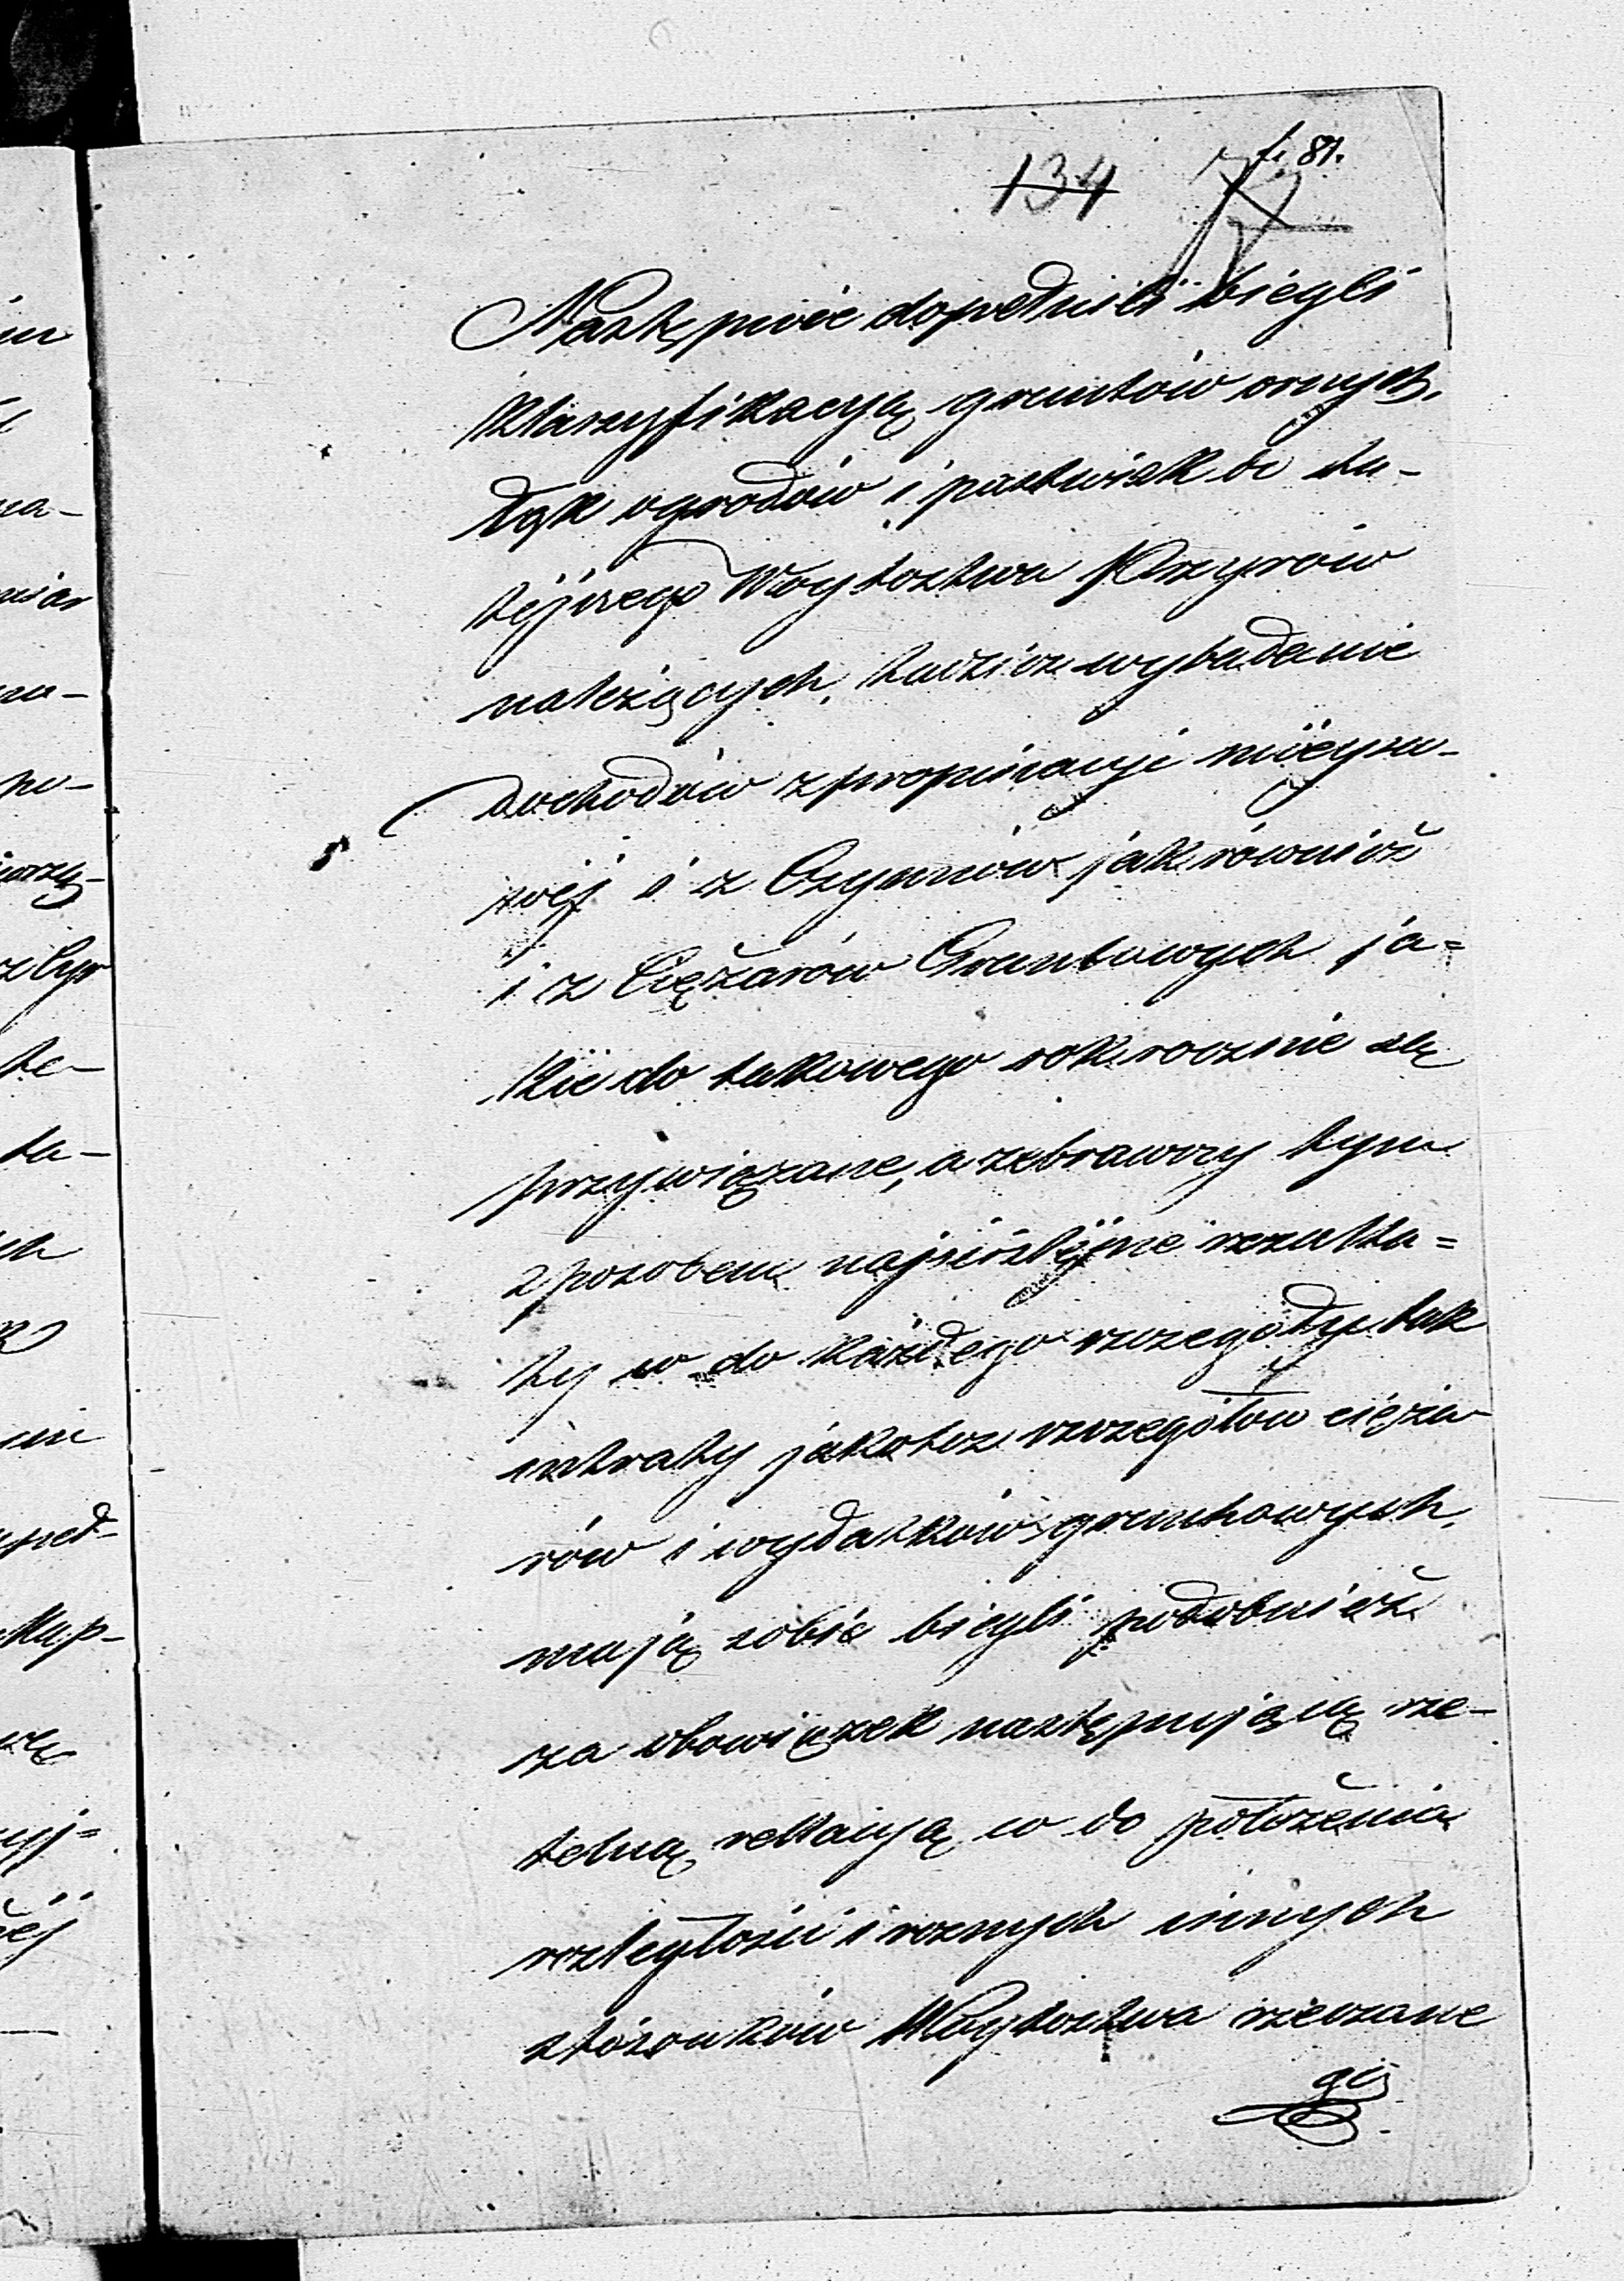 134 f. 81.
Następnie dopełnili biegli
Klassyfikacyą gruntów ornych,
łąk ogrodów i pastwisk do tu-
téjszego Woytostwa Przyrów
należących, tudzież wybadanie
dochodów z propinacyi mieysco-
wéj i z Czynszów jak również
i z Ciężarów Gruntowych ja=
kie do takowego rok rocznie są
przywiązane, a zebrawszy tym
sposobem najściśléjsze rezulta=
ty co do każdego szczegółu tak
intraty jakotez szczegółów cięża-
rów i wydatków gruntowych,
mają sobie biegli podobnież
za obowiązek następującą rze-
telną rellacyą co do położenia
rozległości i roznych innych
stósonków Woytostwa rzeczone
go
in
na-
po-
te-
ta-
ch